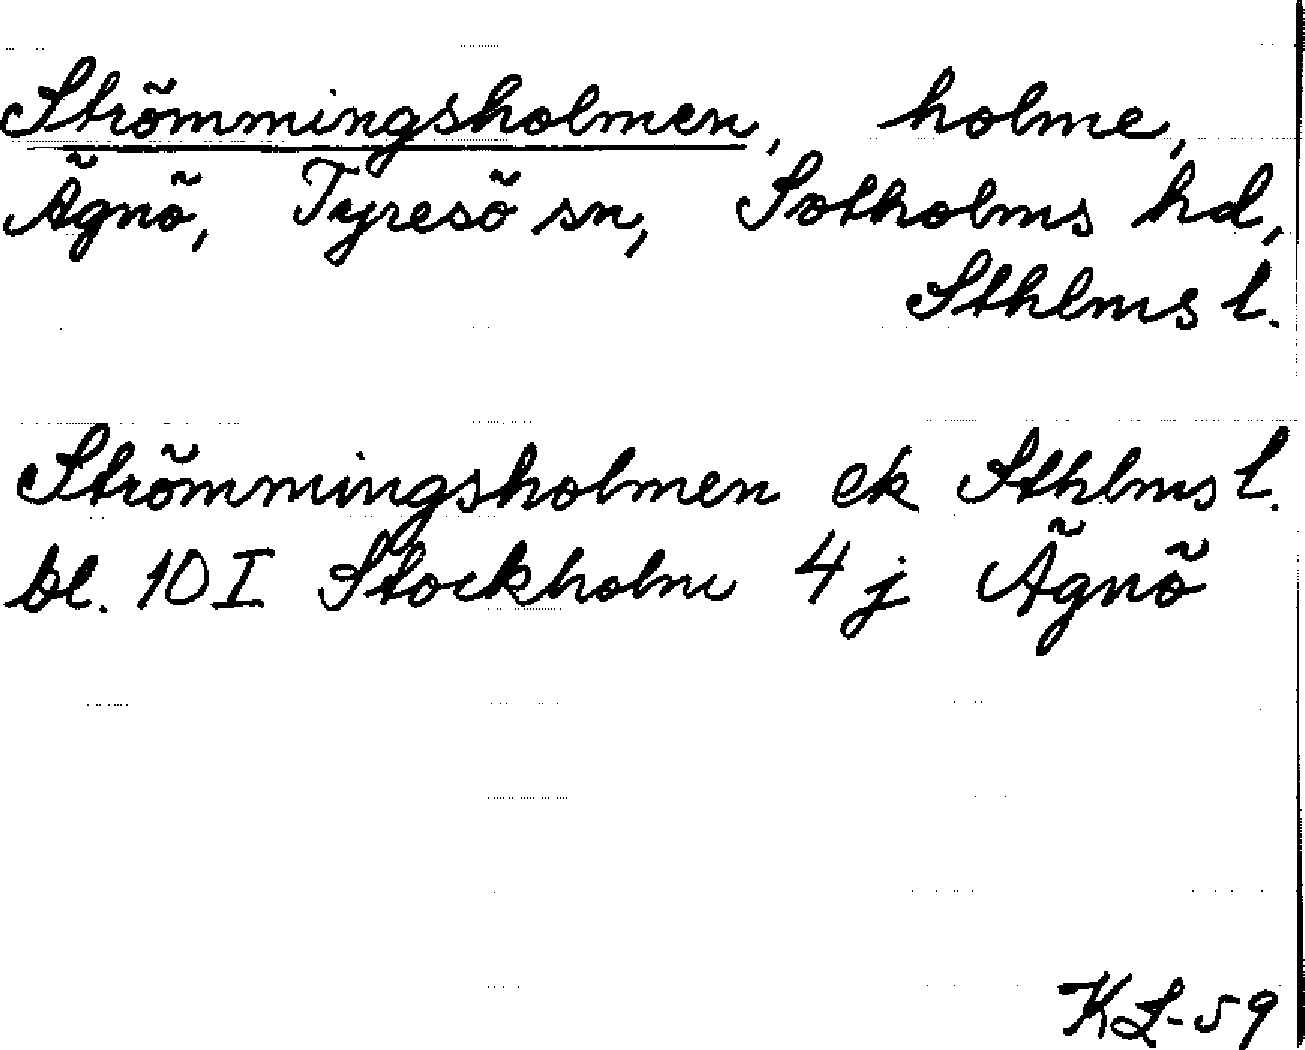 Strömmingsholmen, holme,
Ägnö, Tyresö sn, Sotholms hd,
Sthlms l.
Strömmingsholmen ek Sthlms l.
bl. 10 I Stockholm 4 j Ägnö
KL-59